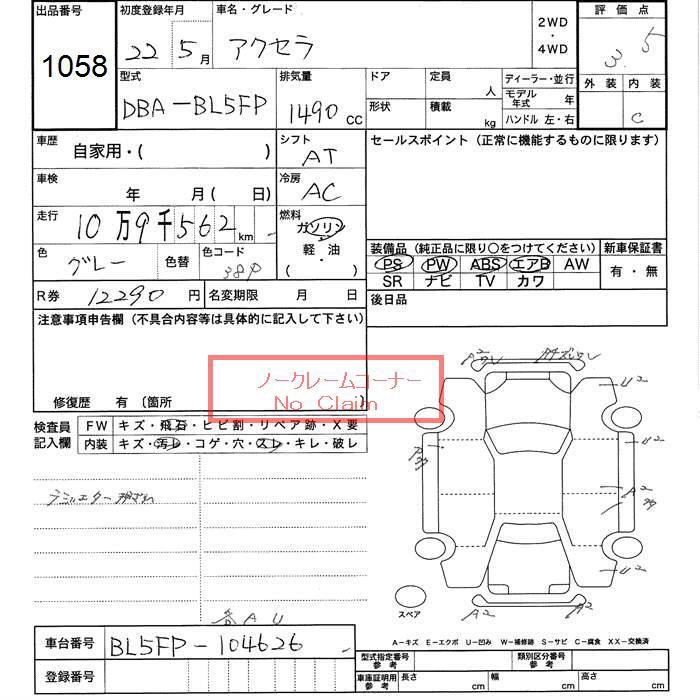 出品番号 初度登録年月 車名・グレード 2WD・4WD 評価点
1058 22 5月 アクセラ 3.5
型式 排気量 ドア 定員 人 ディーラー・並行 外装 内装
DBA-BL5FP 1490cc 形状 積載 kg モデル年式 年 C
ハンドル 左・右
車歴 自家用・( ) シフト AT セールスポイント (正常に機能するものに限ります)
車検 年 月( 日) 冷房 AC
走行 10万9千562km 燃料 ガソリン
軽・油
( ・ )
色 グレー 色替 色コード 38P
装備品 (純正品に限り○をつけてください) 新車保証書
PS PW ABS エアB AW 有・無
SR ナビ TV カワ
R券 12290円 名変期限 月 日 後日品
注意事項申告欄 (不具合内容等は具体的に記入して下さい)
ノークレームコーナー
No Claim
修復歴 有 (箇所 )
検査員記入欄 FW キズ・飛石・ヒビ割・リペア跡・X要
内装 キズ・汚レ・コゲ・穴・スレ・キレ・破レ
U2
U2
A2
U2
A2 A2
スペア
各AU
A-キズ E-エクボ U-凹み W-補修跡 S-サビ C-腐食 XX-交換済
車台番号 BL5FP-104626
登録番号
型式指定番号 参考 類別区分番号 参考
車庫証明用 参考 長さ cm 幅 cm 高さ cm